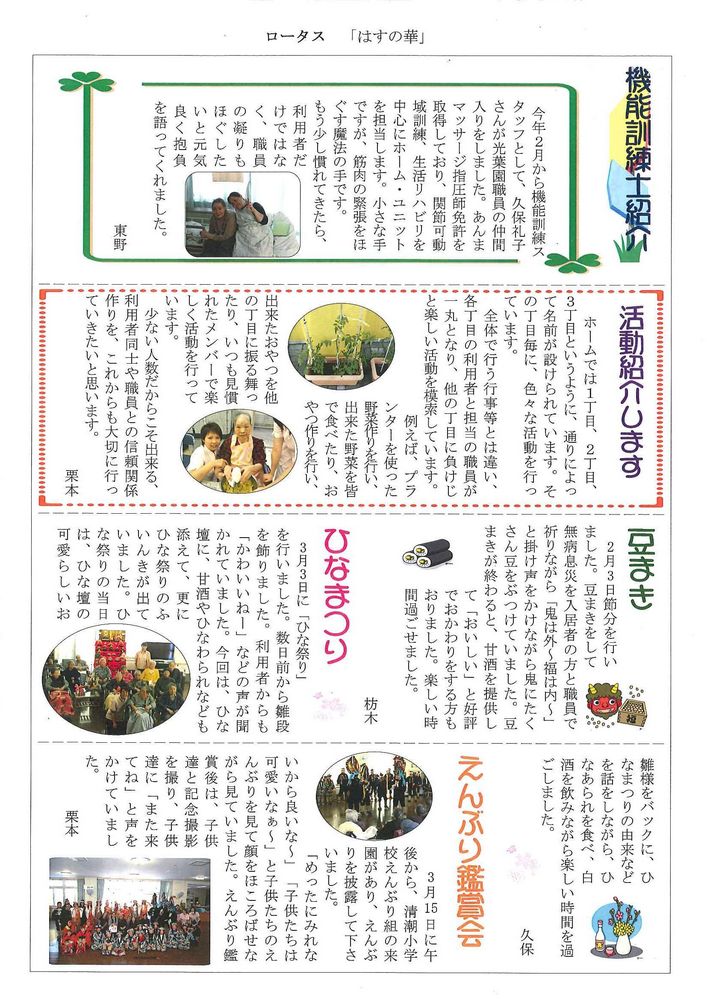 ロータス 「はすの華」
機能訓練士紹介
今年2月から機能訓練ス
タッフとして、久保礼子
さんが光葉園職員の仲間
入りをしました。あんま
マッサージ指圧師免許を
取得しており、関節可動
域訓練、生活リハビリを
中心にホーム・ユニット
を担当します。小さな手
ですが、筋肉の緊張をほ
ぐす魔法の手です。
もう少し慣れてきたら、
利用者だ
けではな
く、職員
の凝りも
ほぐした
いと元気
良く抱負
を語ってくれました。
東野
活動紹介します
ホームでは1丁目、2丁目、
3丁目というように、通りによっ
て名前が設けられています。そ
の丁目毎に、色々な活動を行っ
ています。
全体で行う行事等とは違い、
各丁目の利用者と担当の職員が
一丸となり、他の丁目に負けじ
と楽しい活動を模索しています。
例えば、プラ
ンターを使った
野菜作りを行い、
出来た野菜を皆
で食べたり、お
やつ作りを行い、
出来たおやつを他
の丁目に振る舞っ
たり、いつも見慣
れたメンバーで楽
しく活動を行って
います。
少ない人数だからこそ出来る、
利用者同士や職員との信頼関係
作りを、これからも大切に行っ
ていきたいと思います。
栗本
豆まき
2月3日節分を行い
ました。豆まきをして
無病息災を入居者の方と職員で
祈りながら「鬼は外～福は内～」
と掛け声をかけながら鬼にたく
さん豆をぶつけていました。豆
まきが終わると、甘酒を提供し
て「おいしい」と好評
でおかわりをする方も
おりました。楽しい時
間過ごせました。
枋木
福
ひなまつり
3月3日に「ひな祭り」
を行いました。数日前から雛段
を飾りました。利用者からも
「かわいいねー」などの声が聞
かれていました。今回は、ひな
壇に、甘酒やひなわられなども
添えて、更に
ひな祭りのふ
いんきが出て
いました。ひ
な祭りの当日
は、ひな壇の
可愛らしいお
雛様をバックに、ひ
なまつりの由来など
を話をしながら、ひ
なあられを食べ、白
酒を飲みながら楽しい時間を過
ごしました。
久保
えんぶり鑑賞会
3月15日に午
後から、清潮小学
校えんぶり組の来
園があり、えんぶ
りを披露して下さ
いました。
「めったにみれな
いから良いな～」「子供たちは
可愛いなぁ～」と子供たちのえ
んぶりを見て顔をほころばせな
がら見ていました。えんぶり鑑
賞後は、子供
達と記念撮影
を撮り、子供
達に「また来
てね」と声を
かけていまし
た。
栗本